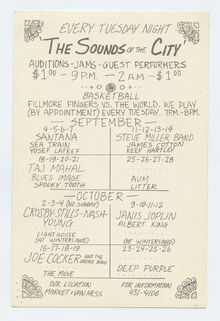 EVERY TUESDAY NIGHT
"THE SOUNDS OF THE CITY"
AUDITIONS-JAMS-GUEST PERFORMERS
$1.00 - 9 P.M. - 2 A.M. - $1.00
BASKETBALL
FILLMORE FINGERS VS. THE WORLD. WE PLAY
(BY APPOINTMENT) EVERY TUESDAY. 7PM-8PM.
SEPTEMBER
4-5-6-7
SANTANA
SEA TRAIN
YUSEF LATEEF
11-12-13-14
STEVE MILLER BAND
JAMES COTTON
KEEF HARTLEY
18-19-20-21
TAJ MAHAL
BLUES IMAGE
SPOOKY TOOTH
25-26-27-28
AUM
LITTER
OCTOBER
2-3-4 (NO SUNDAY)
CROSBY-STILLS-NASH-
YOUNG
LIGHTHOUSE
(AT WINTERLAND)
9-10-11-12
JANIS JOPLIN
ALBERT KING
(AT WINTERLAND)
16-17-18-19
JOE COCKER AND THE GREASE BAND
THE MOVE
23-24-25-26
DEEP PURPLE
OUR LOCATION
MARKET-VAN NESS
FOR INFORMATION
431-9106